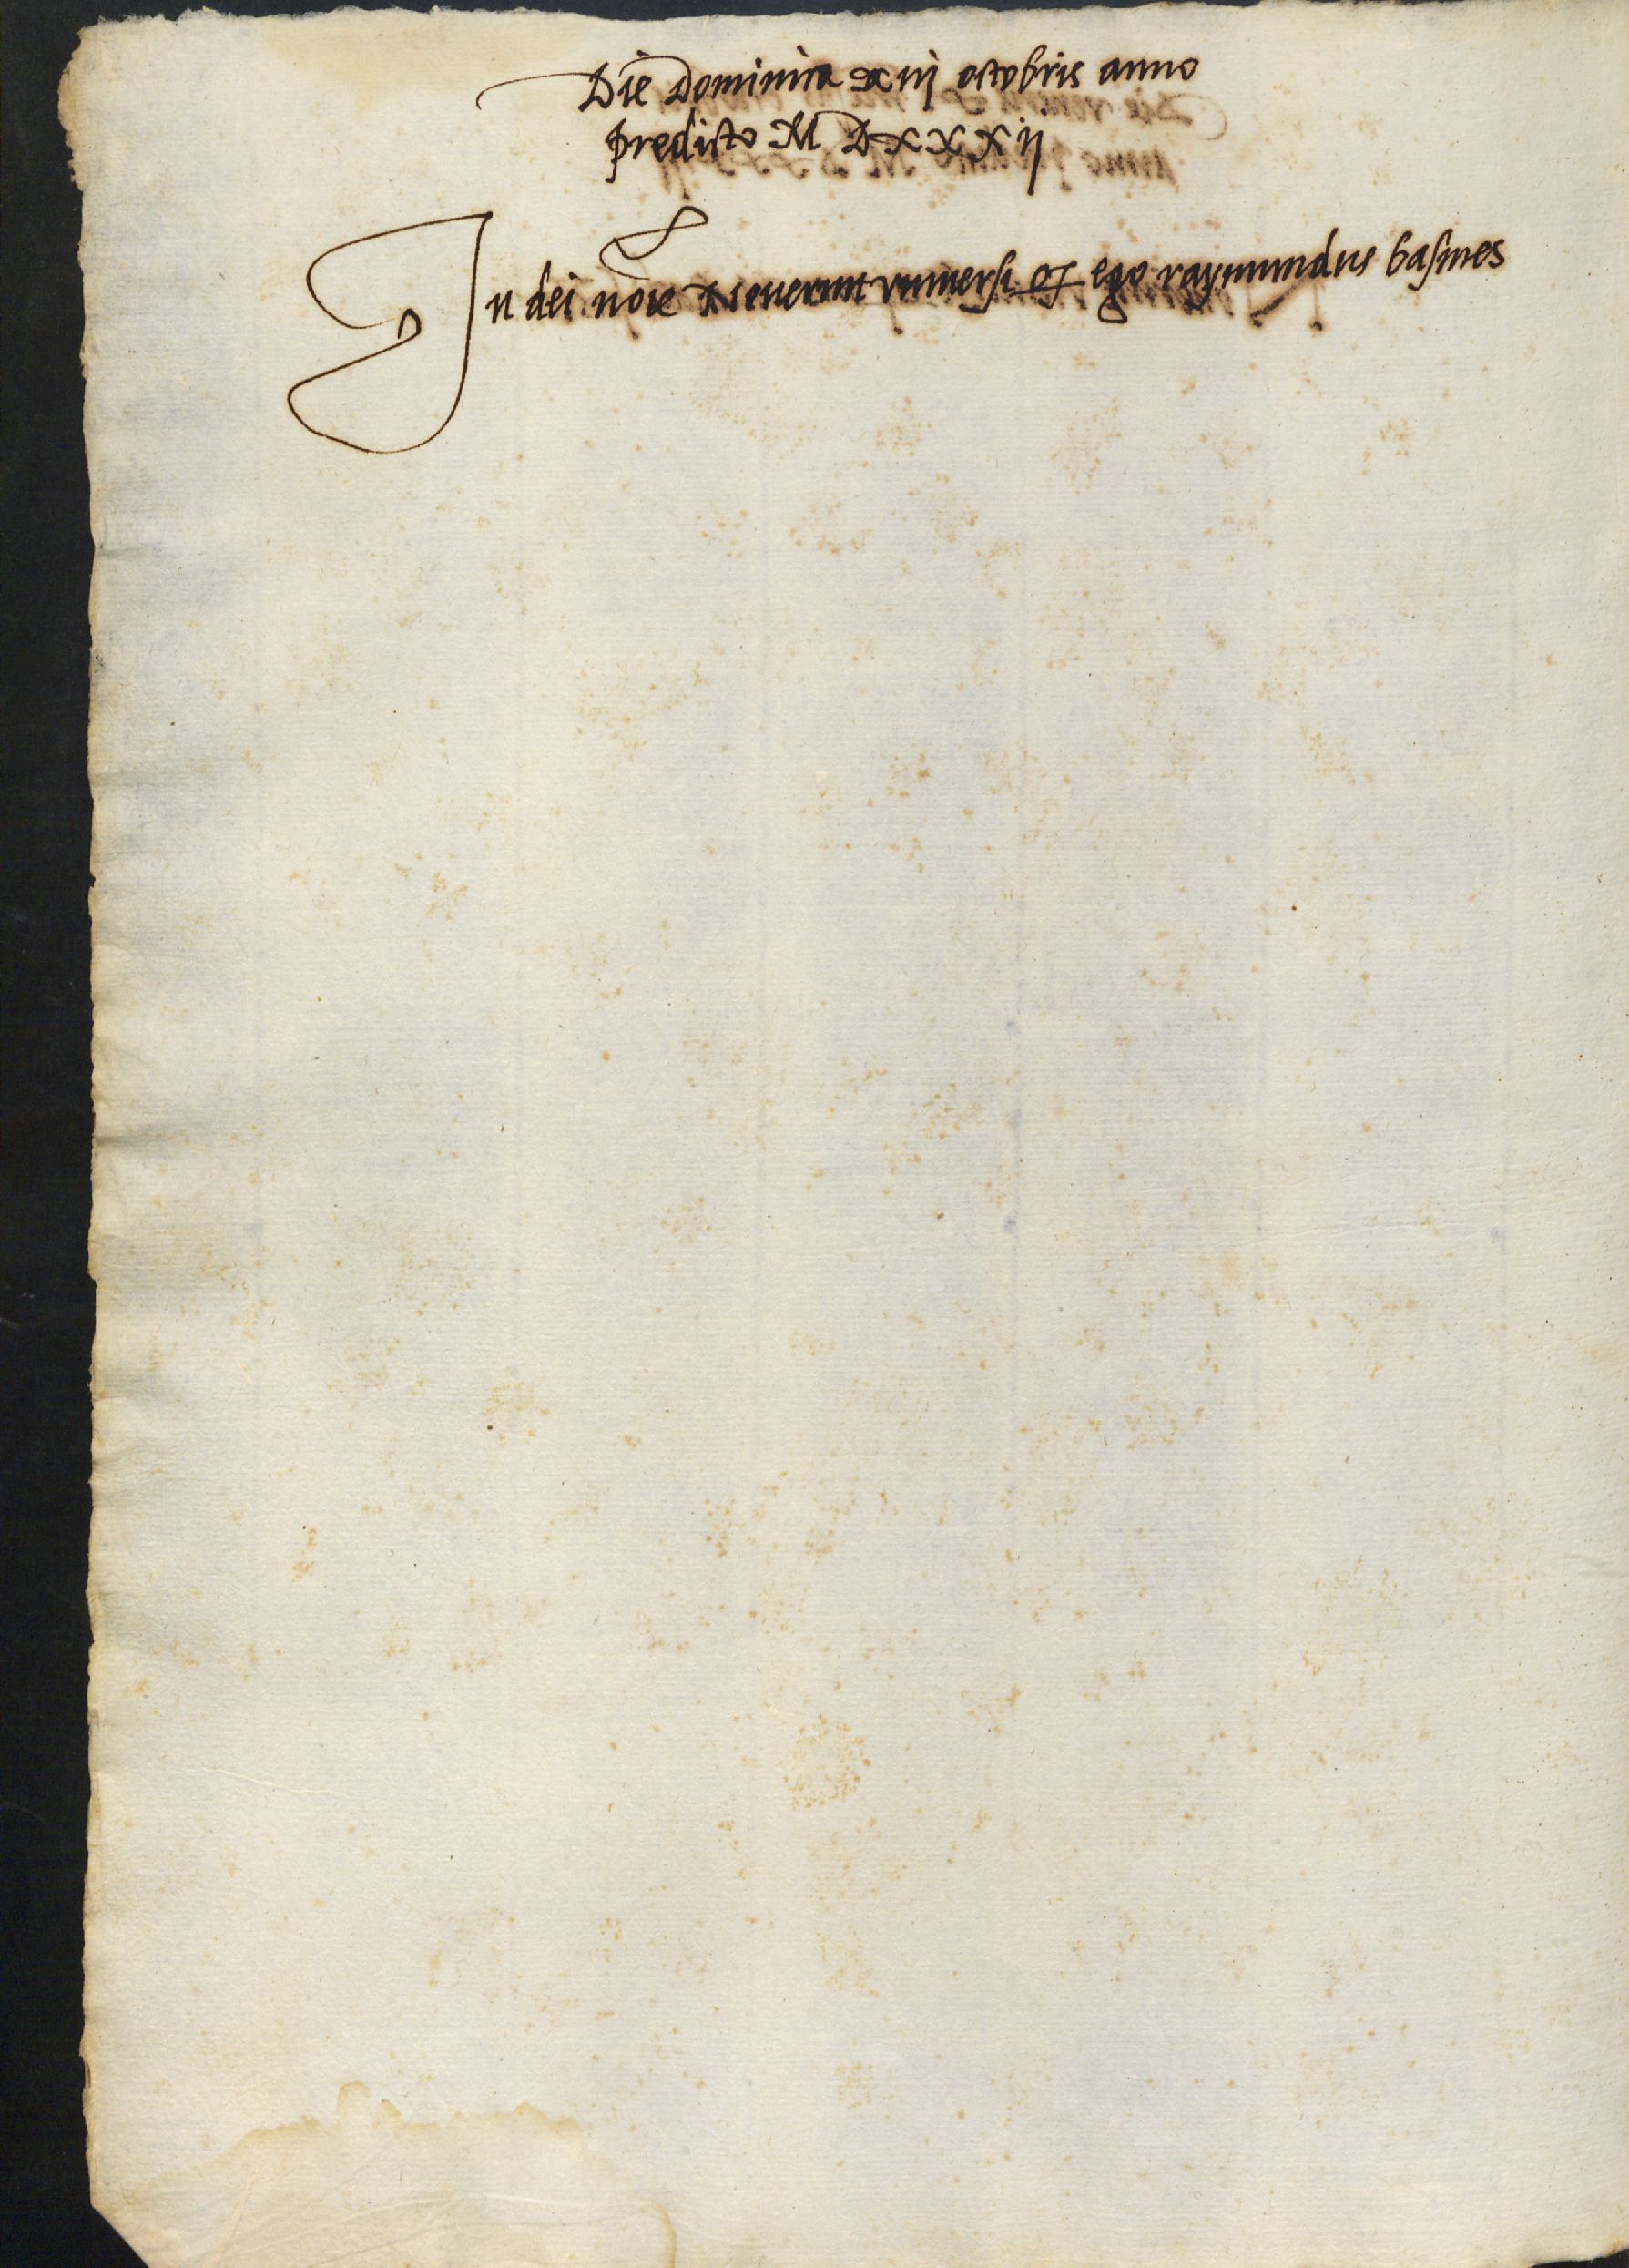 Die Dominica xiij octobris anno
predicto M D x x x ij
In dei noīe Noverint universi qͥ ego raymundus basmes